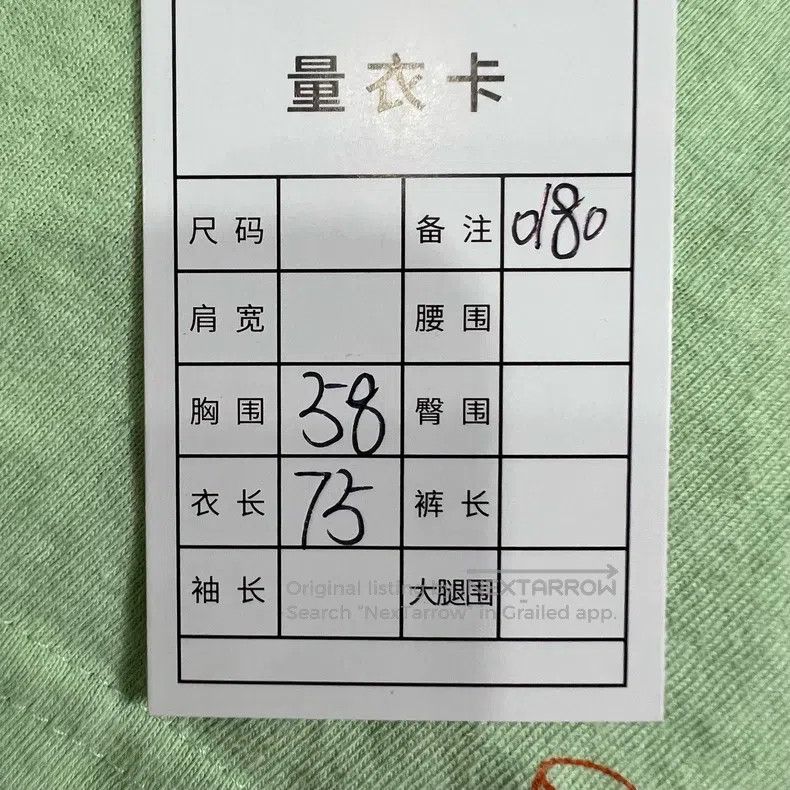 量衣卡
尺码 备注 0180
肩宽 腰围
胸围 58 臀围
衣长 75 裤长
袖长 大腿围
Original listing NEXTARROW
Search "NexTarrow" in Grailed app.